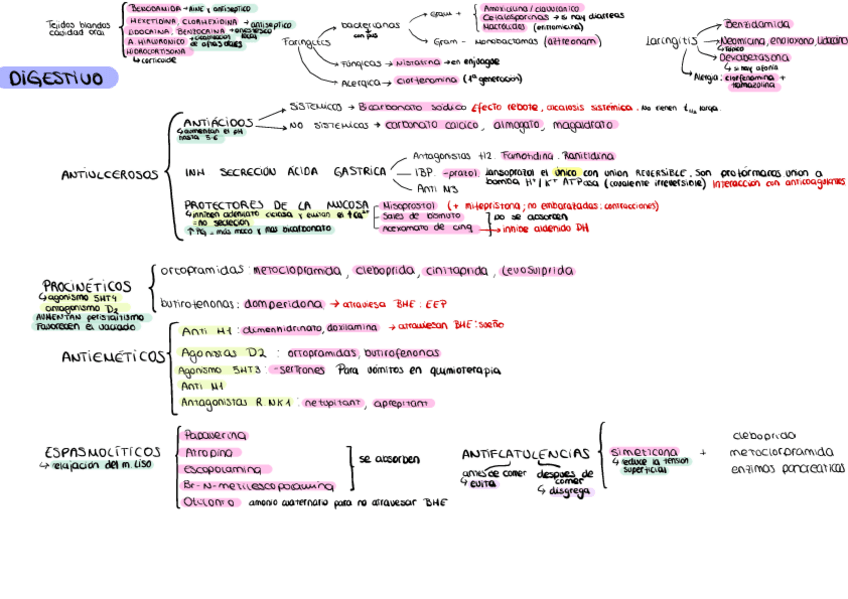 Tejidos blandos cavidad oral
BENCIDAMIDA → AINE y antiséptico
HEXETIDINA, CLORHEXIDINA → antiséptico
LIDOCAINA, BENZOCAINA → anestésico
A. HIALURONICO → local
de aftas
HIDROCORTISONA
↳ corticoide
Faringitis
bacterianas
Gram +
Amoxicilina / clavulánico
Cefalosporinas → si hay diarreas
Macrólidos (eritromicina)
Gram - Monobactamas (aztreonam)
Fúngicas → Nistatina → en enjuague
Alérgica → clorfenamina (1ª generación)
Laringitis
Benzidamida
Neomicina, enoloxono, lidocaina
↳ tópico
Dexametasona
↳ si hay afonía
Alergia: clorfenamina +
tramazolina
DIGESTIVO
ANTIULCEROSOS
ANTIÁCIDOS
↳ aumentan el pH
hasta 5-6
SISTÉMICOS → Bicarbonato sódico Efecto rebote, alcalosis sistémica. No tienen larga.
NO SISTEMICOS → carbonato cálcico, almagato, magaldrato
INH SECRECIÓN ÁCIDA GASTRICA
Antagonistas H2. Famotidina. Ranitidina
IBP. -prazol lansoprazol el único con union REVERSIBLE. Son profármacos union a
bomba H+/K+ ATPasa (covalente irreversible) Interacción con anticoagulantes
Anti M3
PROTECTORES DE LA MUCOSA
↳ inhiben adenilato ciclasa y evitan el ↑ Ca²⁺
= no secreción
↑ Pg = más moco y más bicarbonato
Misoprostol (+ mifepristona; no embarazadas: contracciones)
Sales de bismuto
no se absorben
Acexamato de cinq → inhibe DH
PROCINÉTICOS
↳ agonismo 5HT4
antagonismo D2
AUMENTAN peristaltismo
Favorecen el vaciado
ortopramidas: metoclopramida, cleboprida, cinitaprida, levosulprida
butirofenonas: domperidona → atraviesa BHE: EEP
ANTIEMÉTICOS
Anti H1: dimenhidrinato, doxilamina → atraviesan BHE: sueño
Agonistas D2 : ortopramidas, butirofenonas
Agonismo 5HT3: -setrones Para vómitos en quimioterapia
Anti M1
Antagonistas R NK1: netupitant, aprepitant
ESPASMOLÍTICOS
↳ relajación del m. liso
Papaverina
Atropina
Escopolamina
Br-N-metilescopolamina
se absorben
Otilonio amonio cuaternario para no atravesar BHE
ANTIFLATULENCIAS
antes de comer
↳ evita
después de
comer
↳ disgrega
simeticona +
↳ reduce la tensión
superficial
cleboprida
metoclopramida
enzimas pancreáticas